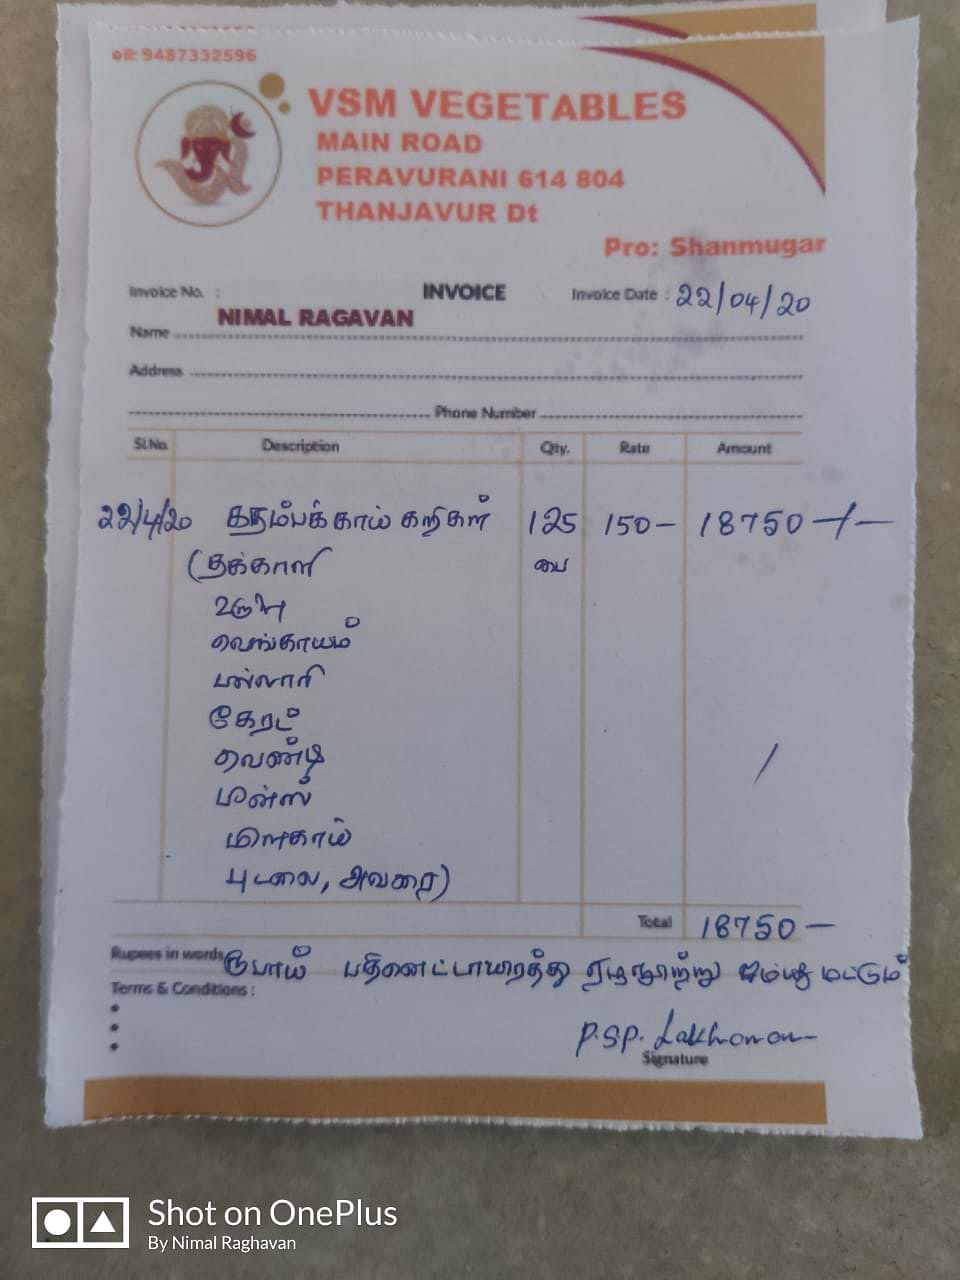 செல்: 9487332596
VSM VEGETABLES
MAIN ROAD
PERAVURANI 614 804
THANJAVUR Dt
Pro: Shanmugar
Invoice No. :
INVOICE
Invoice Date : 22/04/20
Name NIMAL RAGAVAN
Address
Phone Number
Sl.No. Description Qty. Rate Amount
22/4/20 கதம்பக்காய்கறிகள் 125 150- 18750-/-
(தக்காளி பை
உருளை
வெங்காயம்
பல்லாரி
கேரட்
வெண்டி
பீன்ஸ்
மிளகாய்
புடலை, அவரை)
Total 18750-
Rupees in words ரூபாய் பதினெட்டாயிரத்து எழுநூற்று ஐம்பது மட்டும்
Terms & Conditions :
P.SP. Lakhanan
Signature
Shot on OnePlus
By Nimal Raghavan